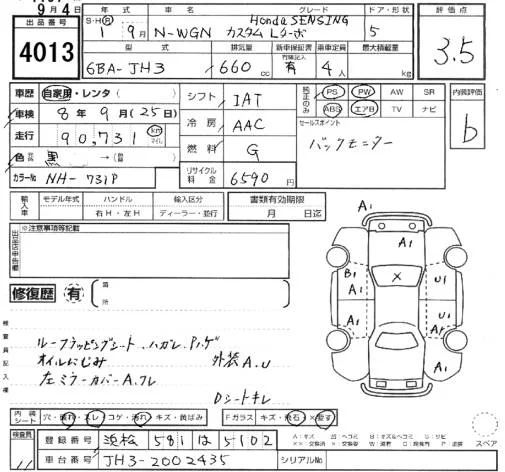 9月4日
出品番号
4013
年式 車名 グレード ドア・形状 評価点
S・H・R 1 9月 N-WGN Honda SENSING カスタム Lターボ 5 3.5
型式 排気量 新車保証書 乗車定員 最大積載量
6BA-JH3 660cc 有 4人 kg
車歴 自家用・レンタ シフト IAT 純正のみ PS PW AW SR 内装評価
車検 8年9月(25日) 冷房 AAC ABS エアB TV ナビ b
走行 90,731 km マイル 燃料 G セールスポイント
色 黒 → バックモニター
カラーNo NH-731P リサイクル料金 6590円
輸入車 モデル年式 ハンドル 輸入区分 書類有効期限
右H・左H ディーラー・並行 月 日迄
※注意事項等記載
修復歴 有 箇所
A1
A1
B1 A1 × U1
A1 U1 A1
検査員記入欄
ルーフラッピングシート、ハガレ
オイルにじみ 外装A.U
左ミラーカバーA.ワレ
Dシートキレ
内装シート 穴・コゲ・キズ・黄ばみ Fガラス キズ・飛石
スペア
検査員 登録番号 浜松 581 は 5102
車台番号 JH3-2002435 シリアルNo.